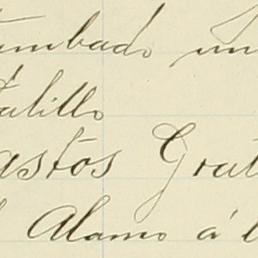 tumbado un
talillo
astos Grat
l Alamo á l